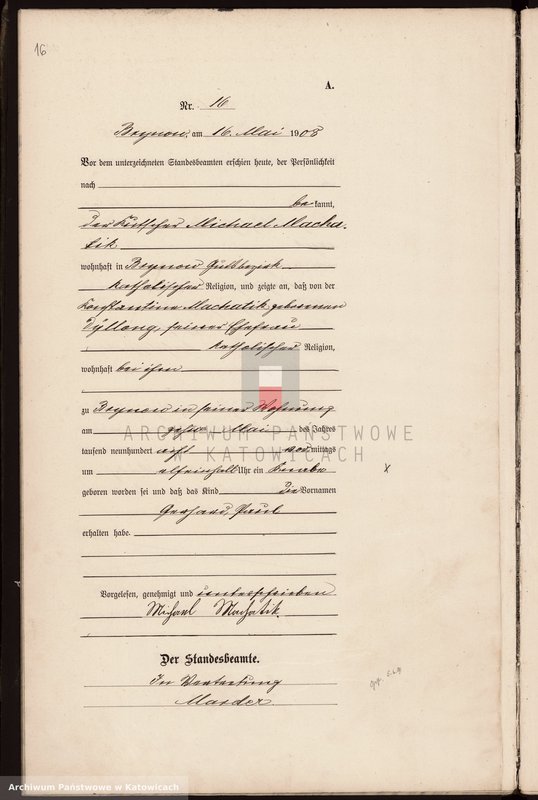 16
A.
Nr. 16
Brynow, am 16. Mai 1908
Vor dem unterzeichneten Standesbeamten erschien heute, der Persönlichkeit
nach
be kannt,
der Kutscher Michael Macha-
tik
wohnhaft in Brynow Gutsbezirk
katholischer Religion, und zeigte an, daß von der
Konstantine Machatik geborenen
Dyllong, seiner Ehefrau
katholischer Religion,
wohnhaft bei ihm
zu Brynow in seiner Wohnung
am Mai des Jahres
tausend neunhundert acht vor mittags
um elfeinhalb Uhr ein Knabe
geboren worden sei und daß das Kind die Vornamen
Gerhard, Paul
erhalten habe.
Vorgelesen, genehmigt und unterschrieben
Michael Machatik.
Der Standesbeamte.
In Vertretung
Marder
ARCHIWUM PAŃSTWOWE
W KATOWICACH
Archiwum Państwowe w Katowicach